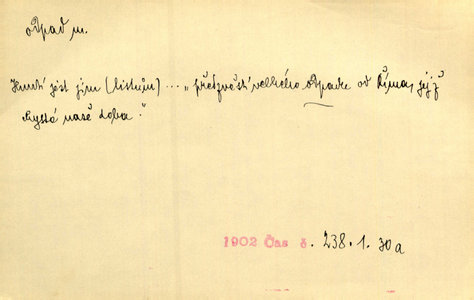 odpad m.
Hnutí jest jim (listům)... „předzvěstí velkého odpadu od Říma, jejž
chystá naše doba."
1902 Čas č. 238. 1. 30a